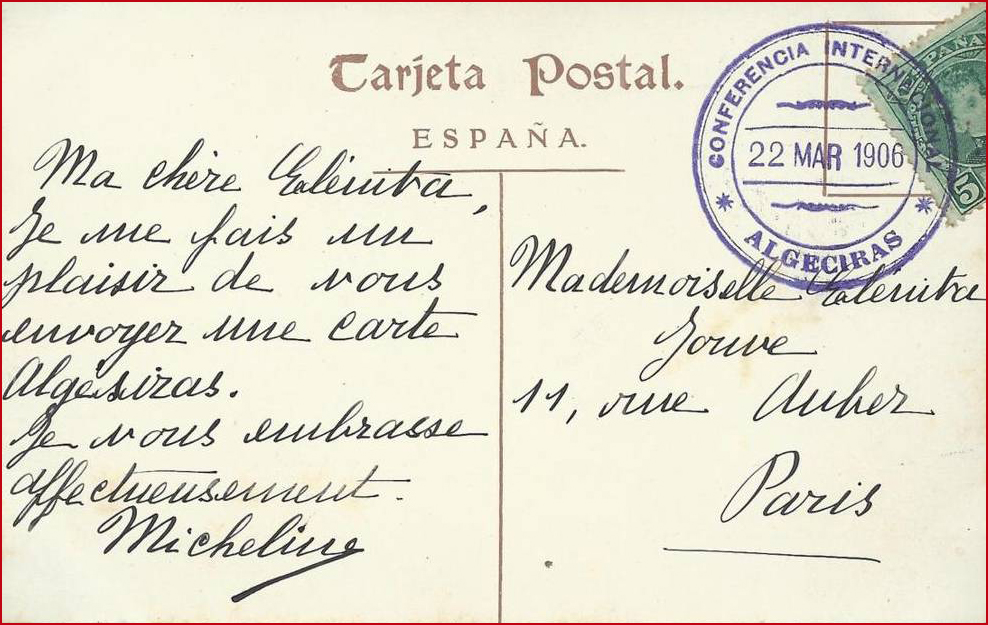 Tarjeta Postal.
ESPAÑA.
CONFERENCIA INTERNACIONAL
22 MAR 1906
* ALGECIRAS *
ESPAÑA
5
Ma chère Elénita,
Je me fais un
plaisir de vous
envoyer une carte
Algésiras.
Je vous embrasse
affectueusement.
Micheline
Mademoiselle Elénita
Jouve
11, rue Auber
Paris